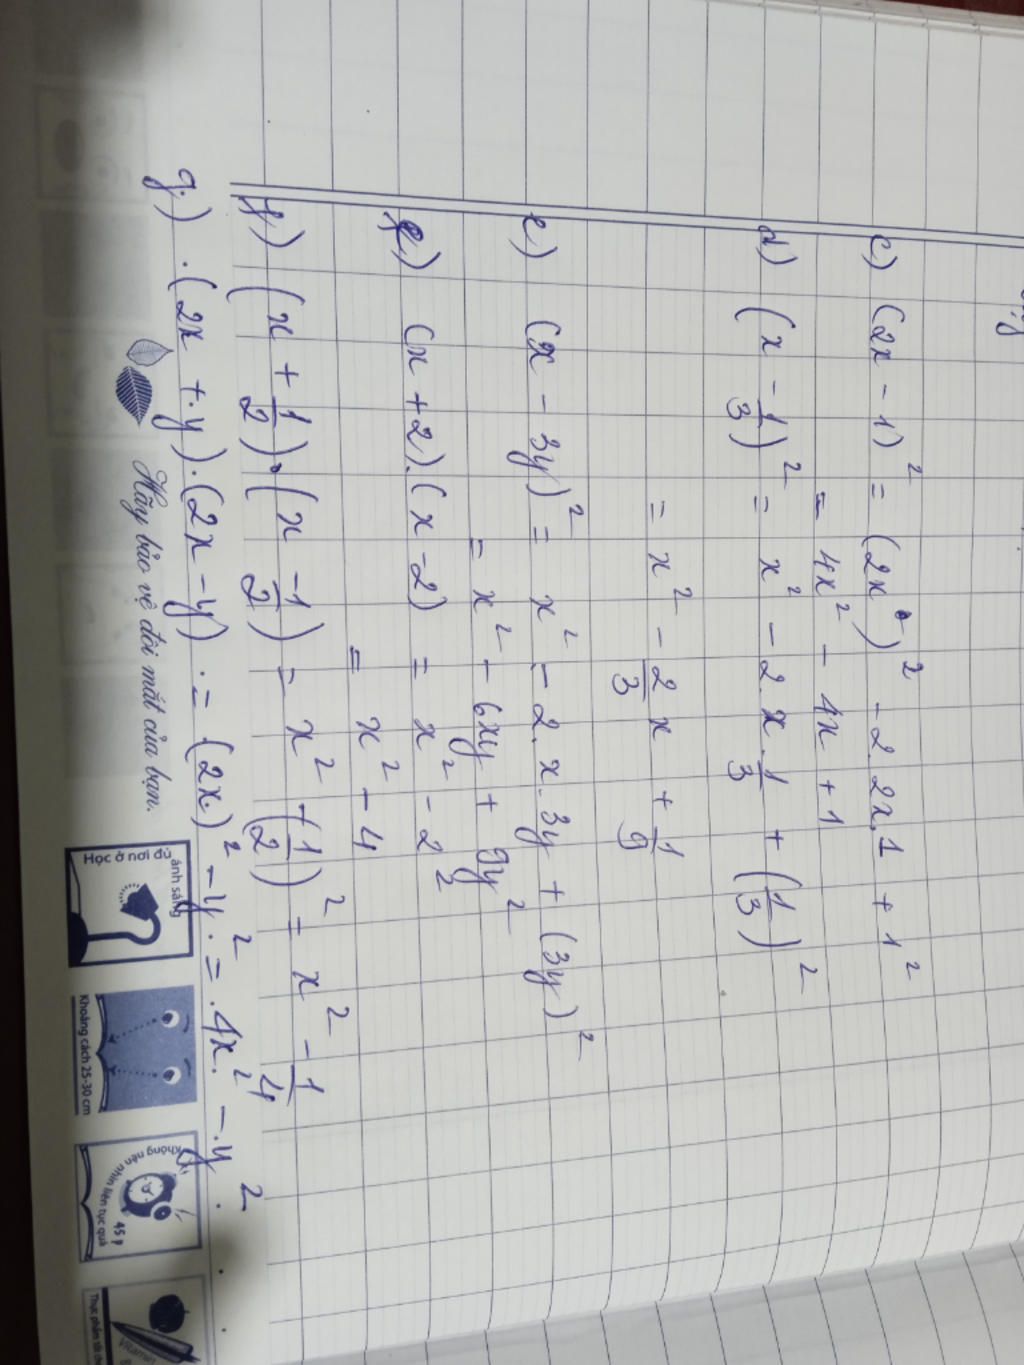 c) (2x - 1)² = (2x)² - 2.2x.1 + 1²
= 4x² - 4x + 1
d) (x - 1/3)² = x² - 2.x.1/3 + (1/3)²
= x² - 2/3 x + 1/9
e) (x - 3y)² = x² - 2.x.3y + (3y)²
= x² - 6xy + 9y²
e) (x + 2).(x - 2) = x² - 2²
= x² - 4
f) (x + 1/2).(x - 1/2) = x² - (1/2)² = x² - 1/4
g) (2x + y).(2x - y) = (2x)² - y² = 4x² - y²
Hãy bảo vệ đôi mắt của bạn.
Học ở nơi đủ ánh sáng
Khoảng cách 25-30 cm
Không nên nhìn liên tục quá 45 p